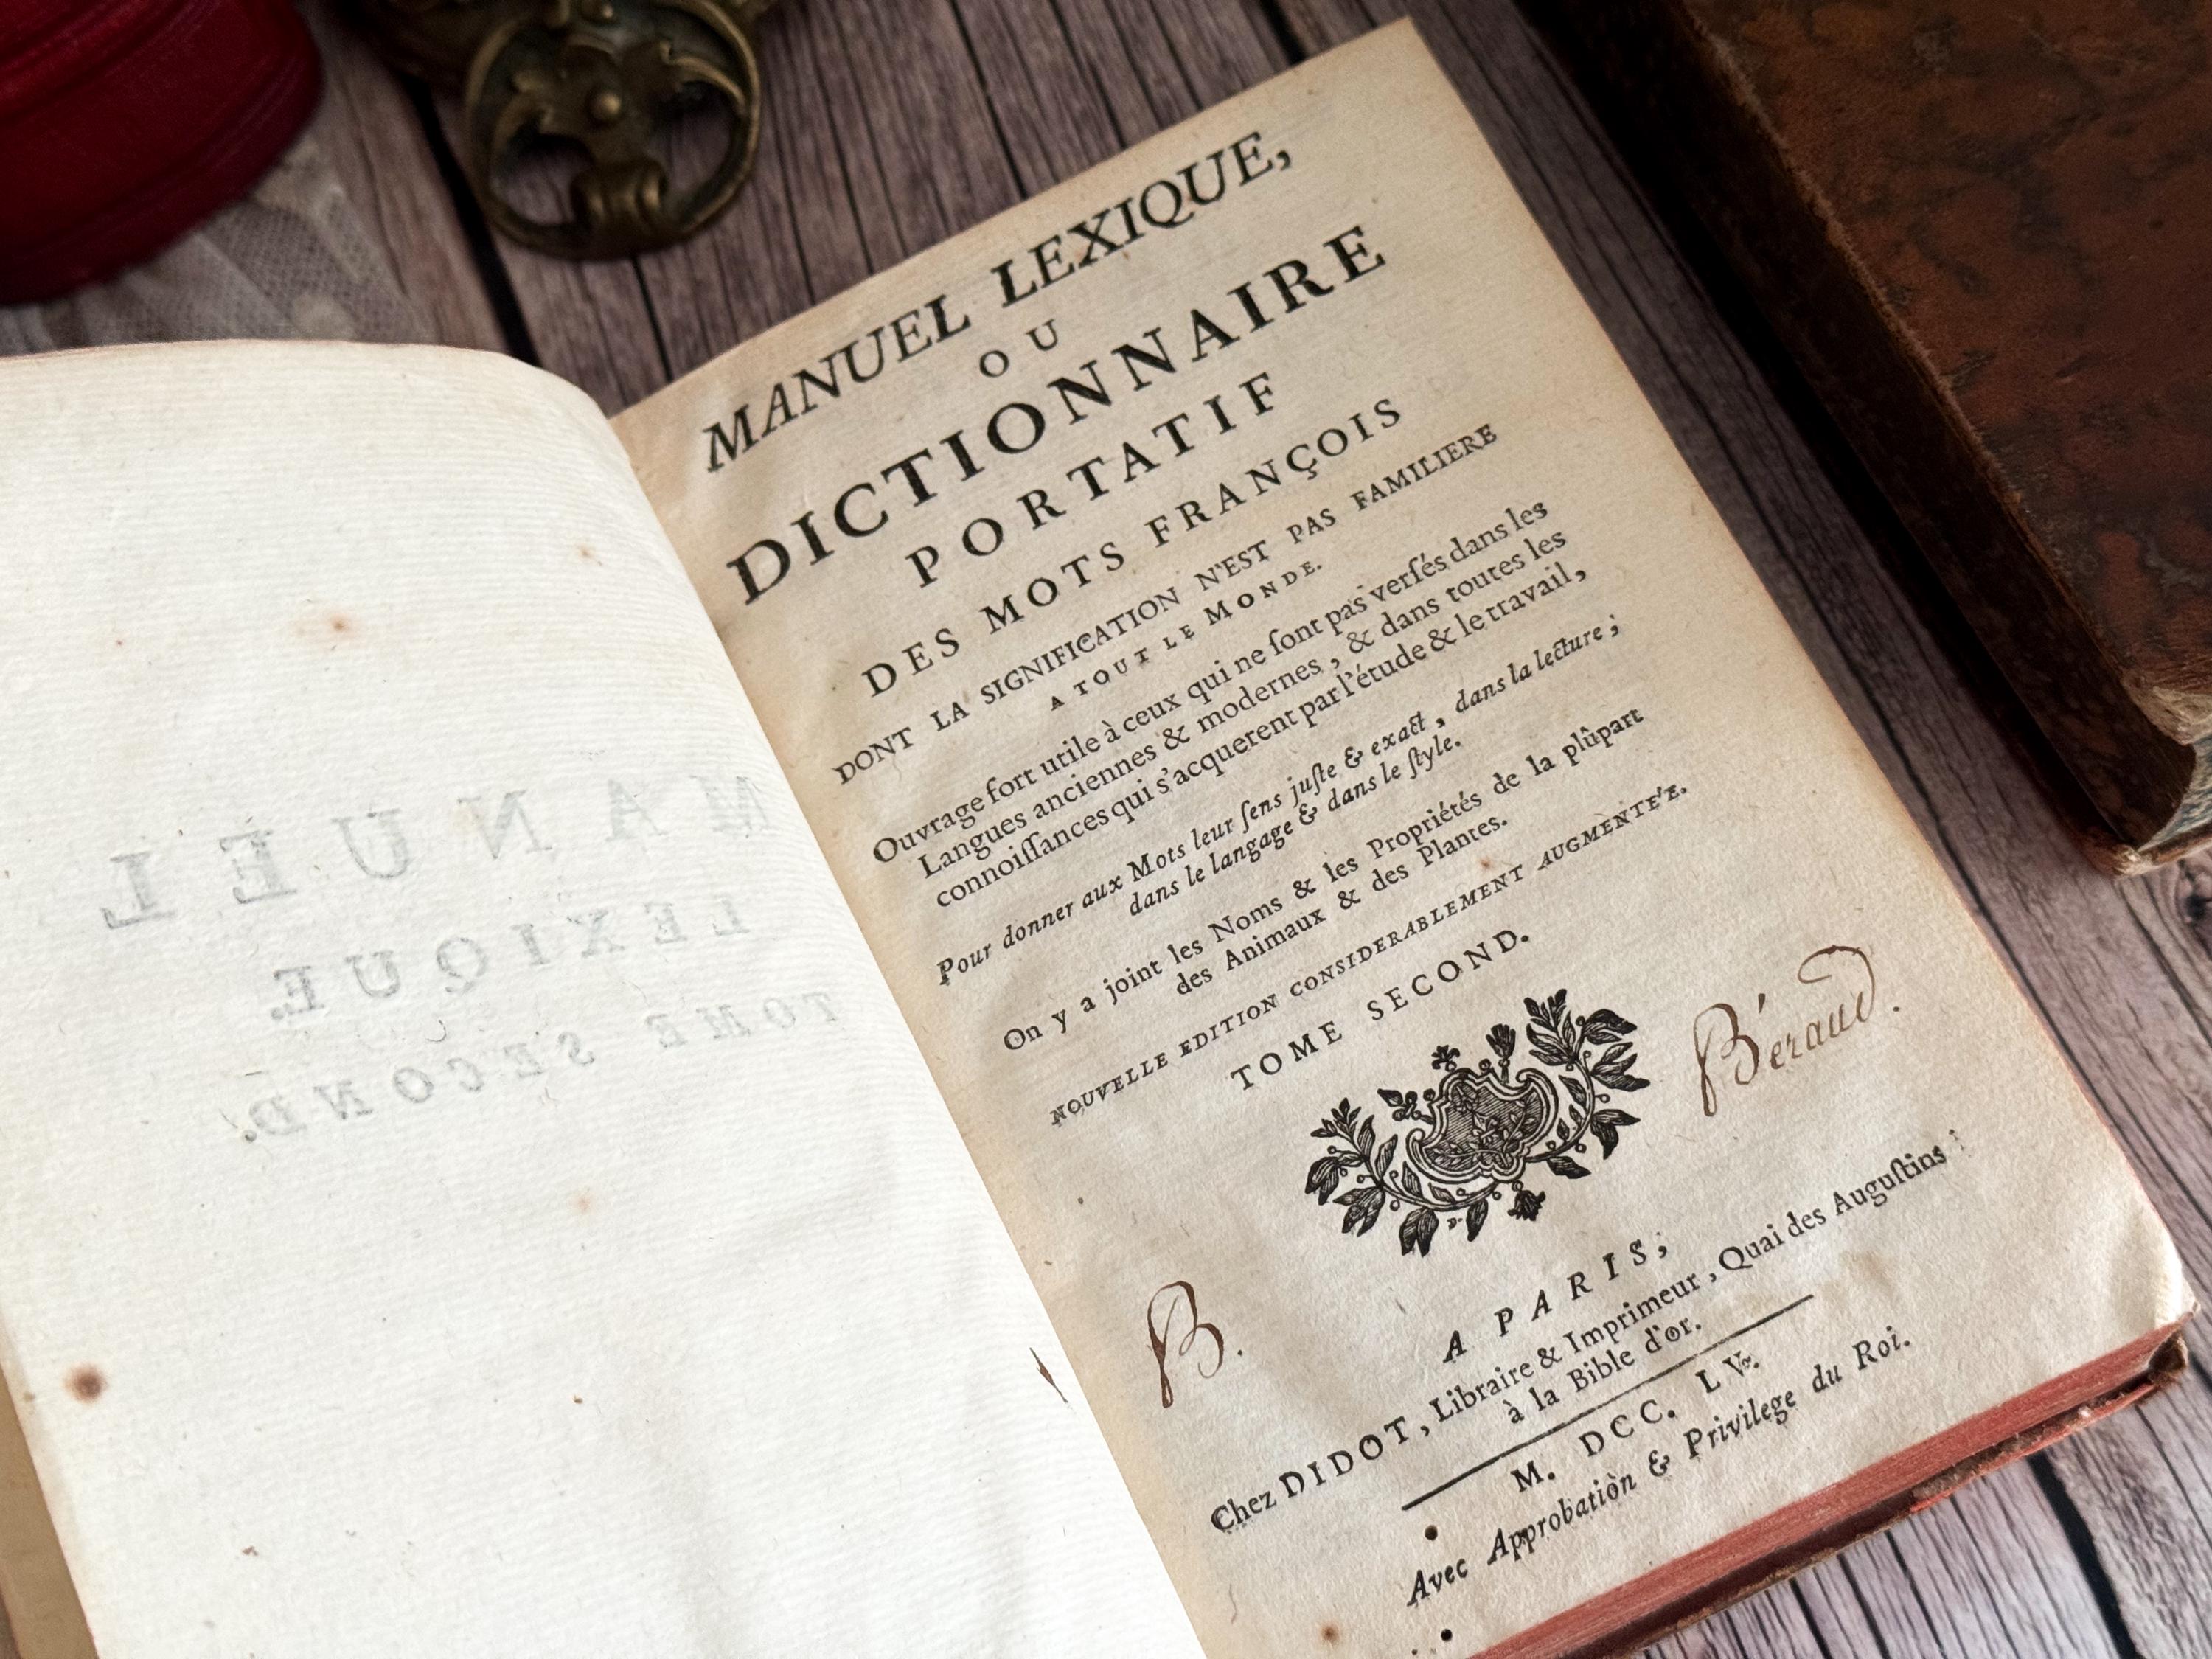 MANUEL
LEXIQUE.
TOME SECOND.
MANUEL LEXIQUE,
OU
DICTIONNAIRE
PORTATIF
DES MOTS FRANÇOIS
DONT LA SIGNIFICATION N'EST PAS FAMILIERE
A TOUT LE MONDE.
Ouvrage fort utile à ceux qui ne ſont pas verſés dans les
Langues anciennes & modernes, & dans toutes les
connoiſſances qui s'acquerent par l'étude & le travail,
Pour donner aux Mots leur ſens juſte & exact, dans la lecture;
dans le langage & dans le ſtyle.
On y a joint les Noms & les Propriétés de la plûpart
des Animaux & des Plantes.
NOUVELLE EDITION CONSIDERABLEMENT AUGMENTE'E.
TOME SECOND.
Béraud.
B.
A PARIS,
Chez DIDOT, Libraire & Imprimeur, Quai des Auguſtins;
à la Bible d'or.
M. DCC. LV.
Avec Approbation & Privilege du Roi.